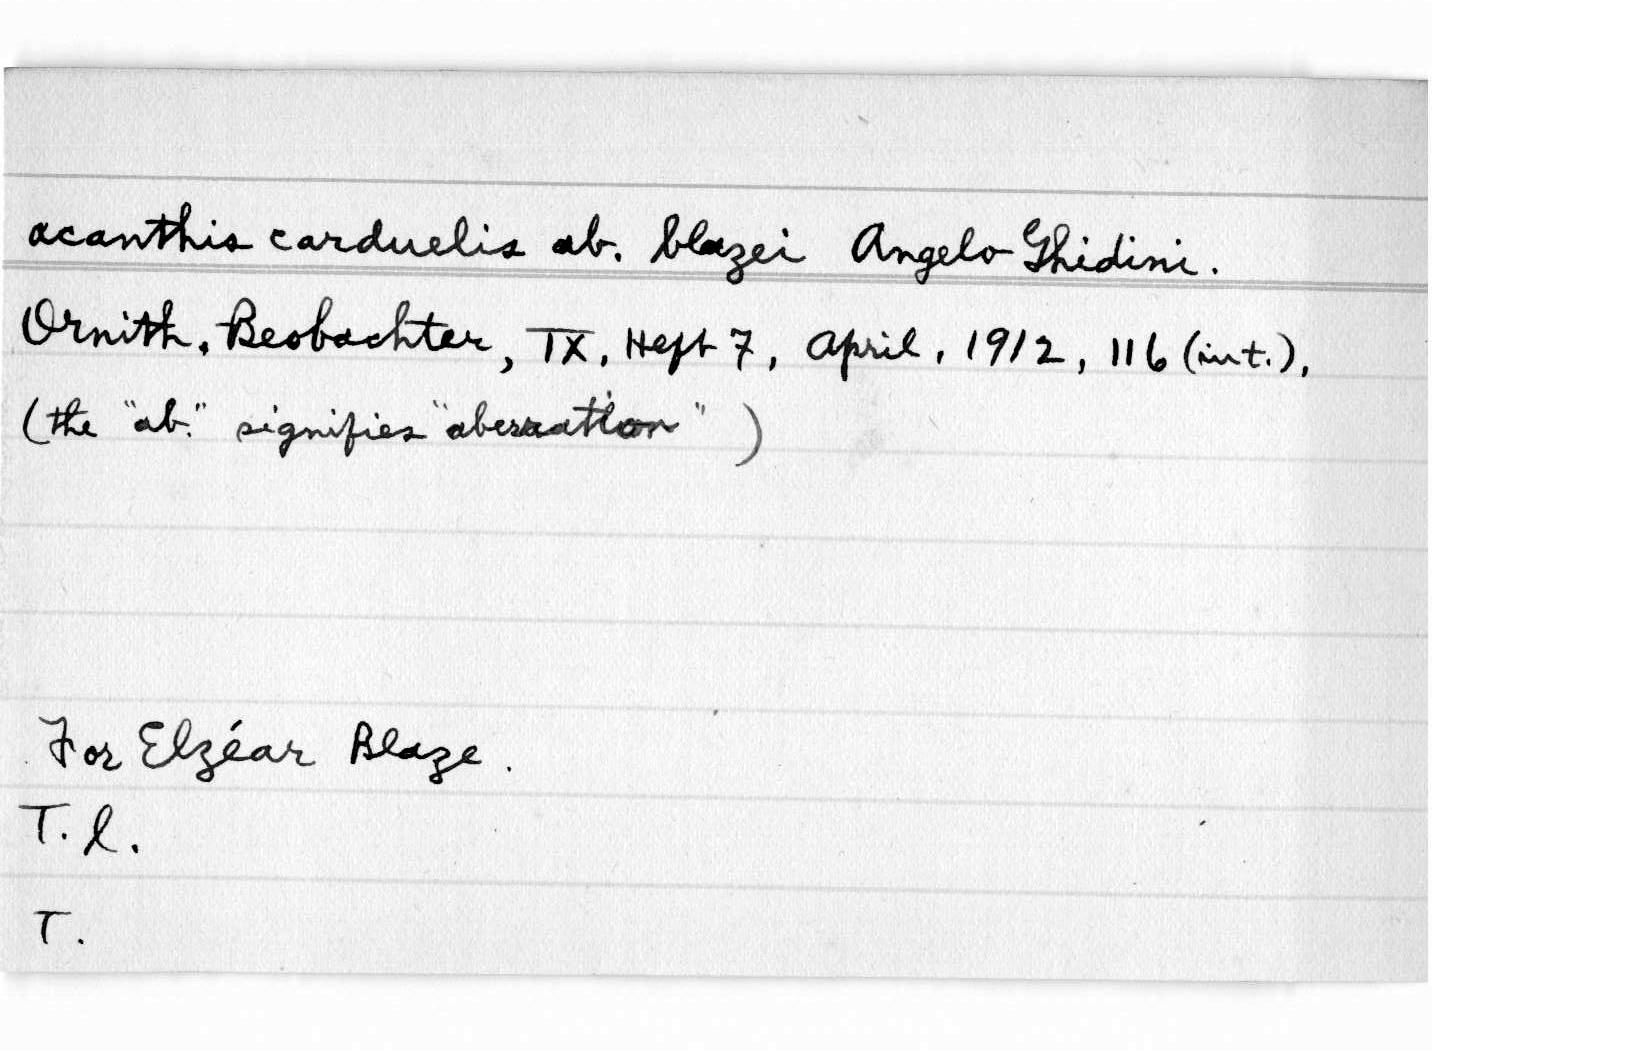 acanthis carduelis ab. blazei Angelo Ghidini.
Ornith. Beobachter, IX, Heft 7, April, 1912, 116 (int.),
(the "ab." signifies "aberration")
For Elzéar Blaze.
T. l.
T.